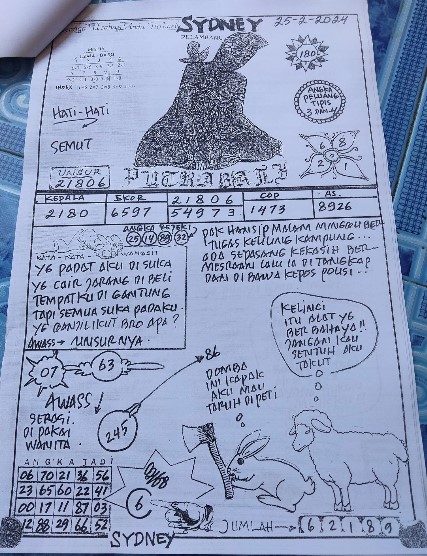 SYDNEY
25-2-2024
180
HATI-HATI
SEMUT
ANGKA
PELUANG
TIPIS
UNSUR
21806
6 8
2 1
PUTRABALI
KEPALA SKOR 21806 COP AS
2180 6597 54973 1473 8926
ANGKA REZEKI
25 14 89 32
KATA-KATA
YG PADAT AKU DI SUKA
YG CAIR JARANG DI BELI
TEMPATKU DI GANTUNG
TAPI SEMUA SUKA PADAKU.
YG GANJIL IKUT BRO APA?
AWASS → UNSURNYA.
PAK HANSIP MALAM MINGGU BER
TUGAS KELILING KAMPUNG..
ADA SEPASANG KEKASIH BER-
MESRAAN LALU IA DI TANGKAP
DAN DI BAWA KEPOS POLISI..
86
07
63
AWASS
SERAGI.
DI PAKAI
WANITA.
247
DOMBA
INI KAPAK
AKU MAU
TARUH DI PETI
KELINCI
ITU ALAT YG
BERBAHAYA!!
JANGAN KAU
SENTUH AKU
TAKUT
ANGKA JADI
06 70 21 36 56
23 65 60 22 41
00 17 11 87 03
12 88 29 66 52
6
JUMLAH → 6 2 1 8 9
SYDNEY